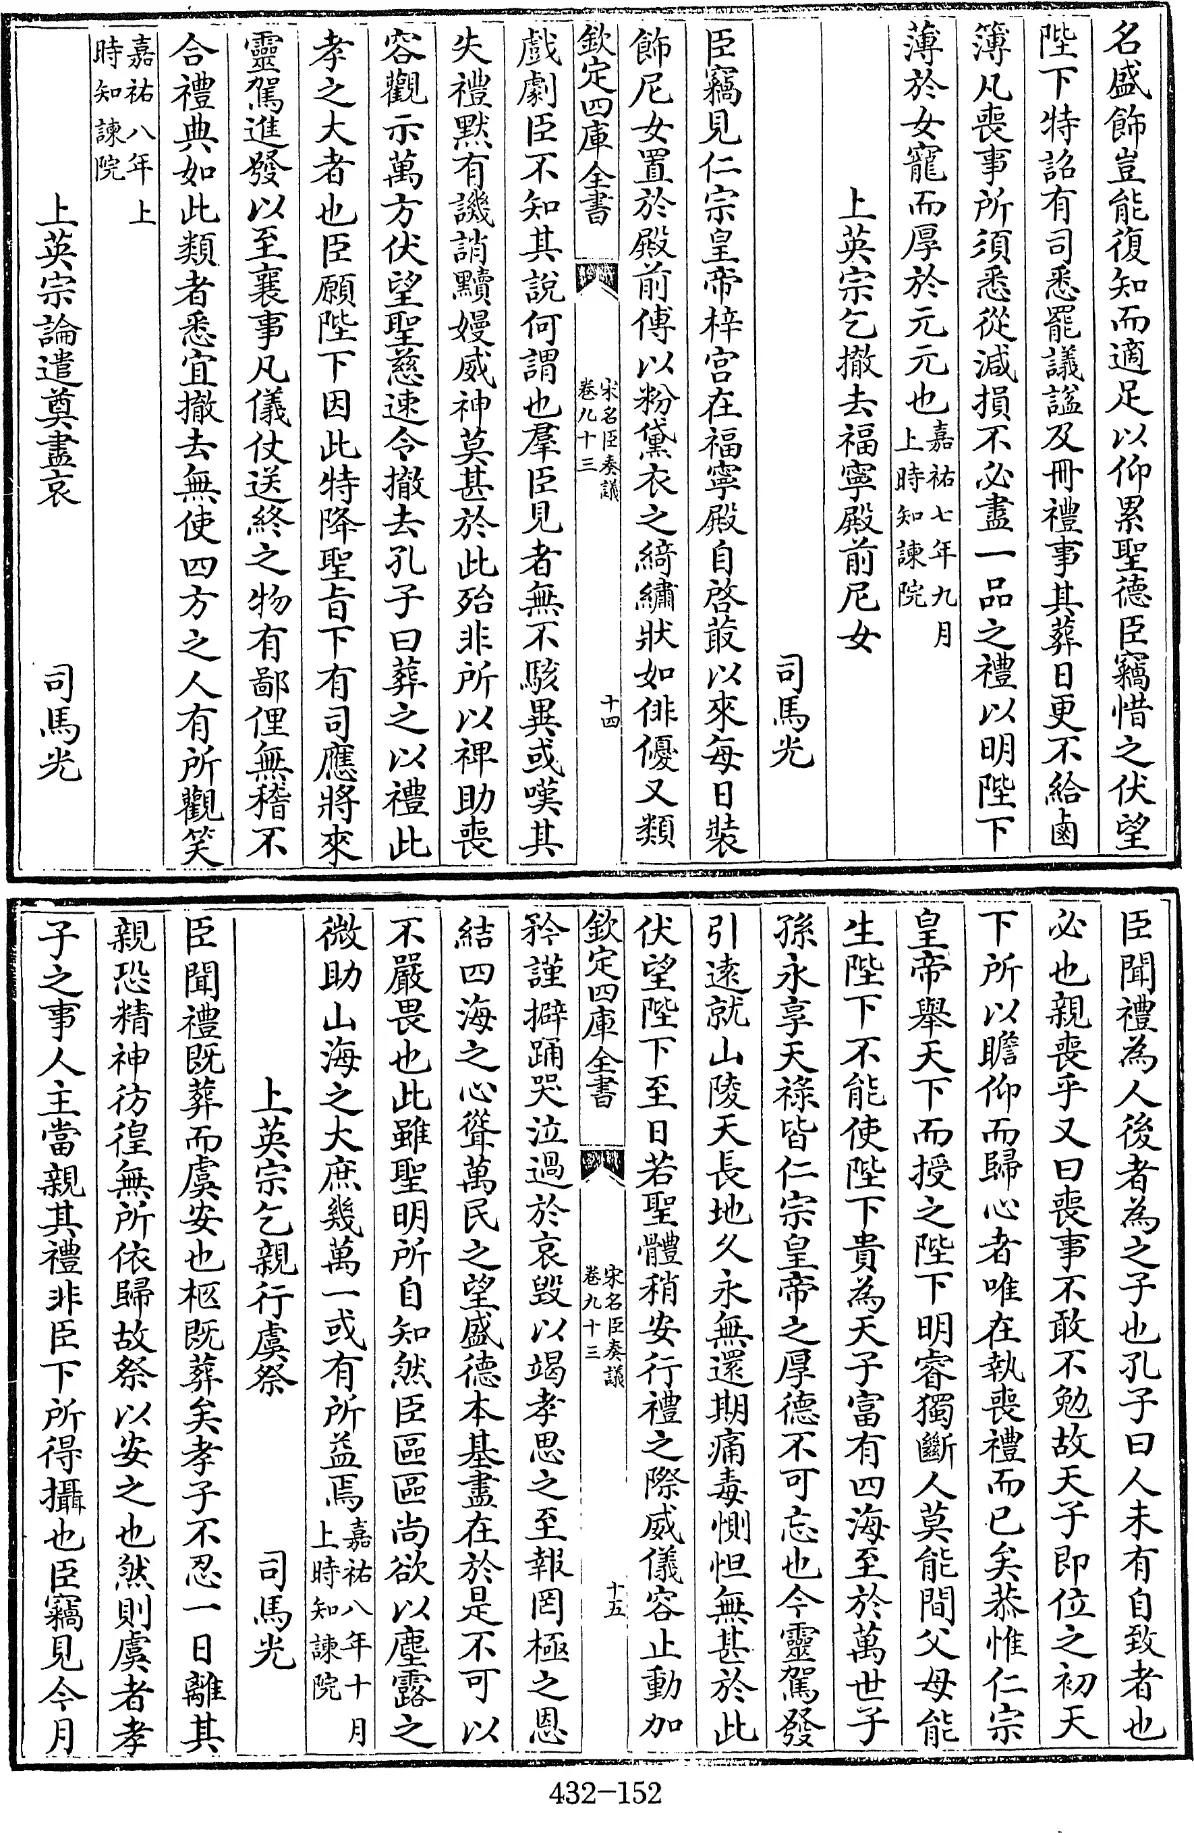 名盛飾豈能復知而適足以仰累聖德臣竊惜之伏望
陛下特詔有司悉罷議諡及冊禮事其葬日更不給鹵
簿凡喪事所須悉從減損不必盡一品之禮以明陛下
薄於女寵而厚於元元也嘉祐七年九月上時知諫院
上英宗乞撤去福寧殿前尼女
司馬光
臣竊見仁宗皇帝梓宮在福寧殿自啓菆以來每日裝
飾尼女置於殿前傅以粉黛衣之綺繡狀如俳優又類
欽定四庫全書
宋名臣奏議
卷九十三
十四
戲劇臣不知其說何謂也羣臣見者無不駭異或嘆其
失禮默有譏誚黷嫚威神莫甚於此殆非所以裨助喪
容觀示萬方伏望聖慈速令撤去孔子曰葬之以禮此
孝之大者也臣願陛下因此特降聖旨下有司應將來
靈駕進發以至襄事凡儀仗送終之物有鄙俚無稽不
合禮典如此類者悉宜撤去無使四方之人有所觀笑
嘉祐八年上
時知諫院
上英宗論遣奠盡哀
司馬光
臣聞禮為人後者為之子也孔子曰人未有自致者也
必也親喪乎又曰喪事不敢不勉故天子即位之初天
下所以瞻仰而歸心者唯在執喪禮而已矣恭惟仁宗
皇帝舉天下而授之陛下明睿獨斷人莫能間父母能
生陛下不能使陛下貴為天子富有四海至於萬世子
孫永享天祿皆仁宗皇帝之厚德不可忘也今靈駕發
引遠就山陵天長地久永無還期痛毒惻怛無甚於此
伏望陛下至日若聖體稍安行禮之際威儀容止動加
欽定四庫全書
宋名臣奏議
卷九十三
十五
矜謹擗踊哭泣過於哀毀以竭孝思之至報罔極之恩
結四海之心聳萬民之望盛德本基盡在於是不可以
不嚴畏也此雖聖明所自知然臣區區尚欲以塵露之
微助山海之大庶幾萬一或有所益焉嘉祐八年十月上時知諫院
上英宗乞親行虞祭
司馬光
臣聞禮既葬而虞安也柩既葬矣孝子不忍一日離其
親恐精神彷徨無所依歸故祭以安之也然則虞者孝
子之事人主當親其禮非臣下所得攝也臣竊見今月
432-152